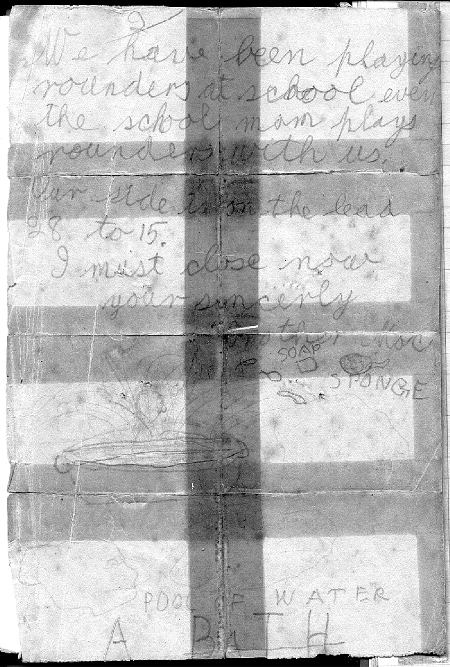 2
We have been playing
rounders at school even
the school mom plays
rounders with us.
Our side is on the lead
28 to 15.
I must close now
your suncerly
Brother Mac
SOAP
SPONGE
POOL OF WATER
A BATH